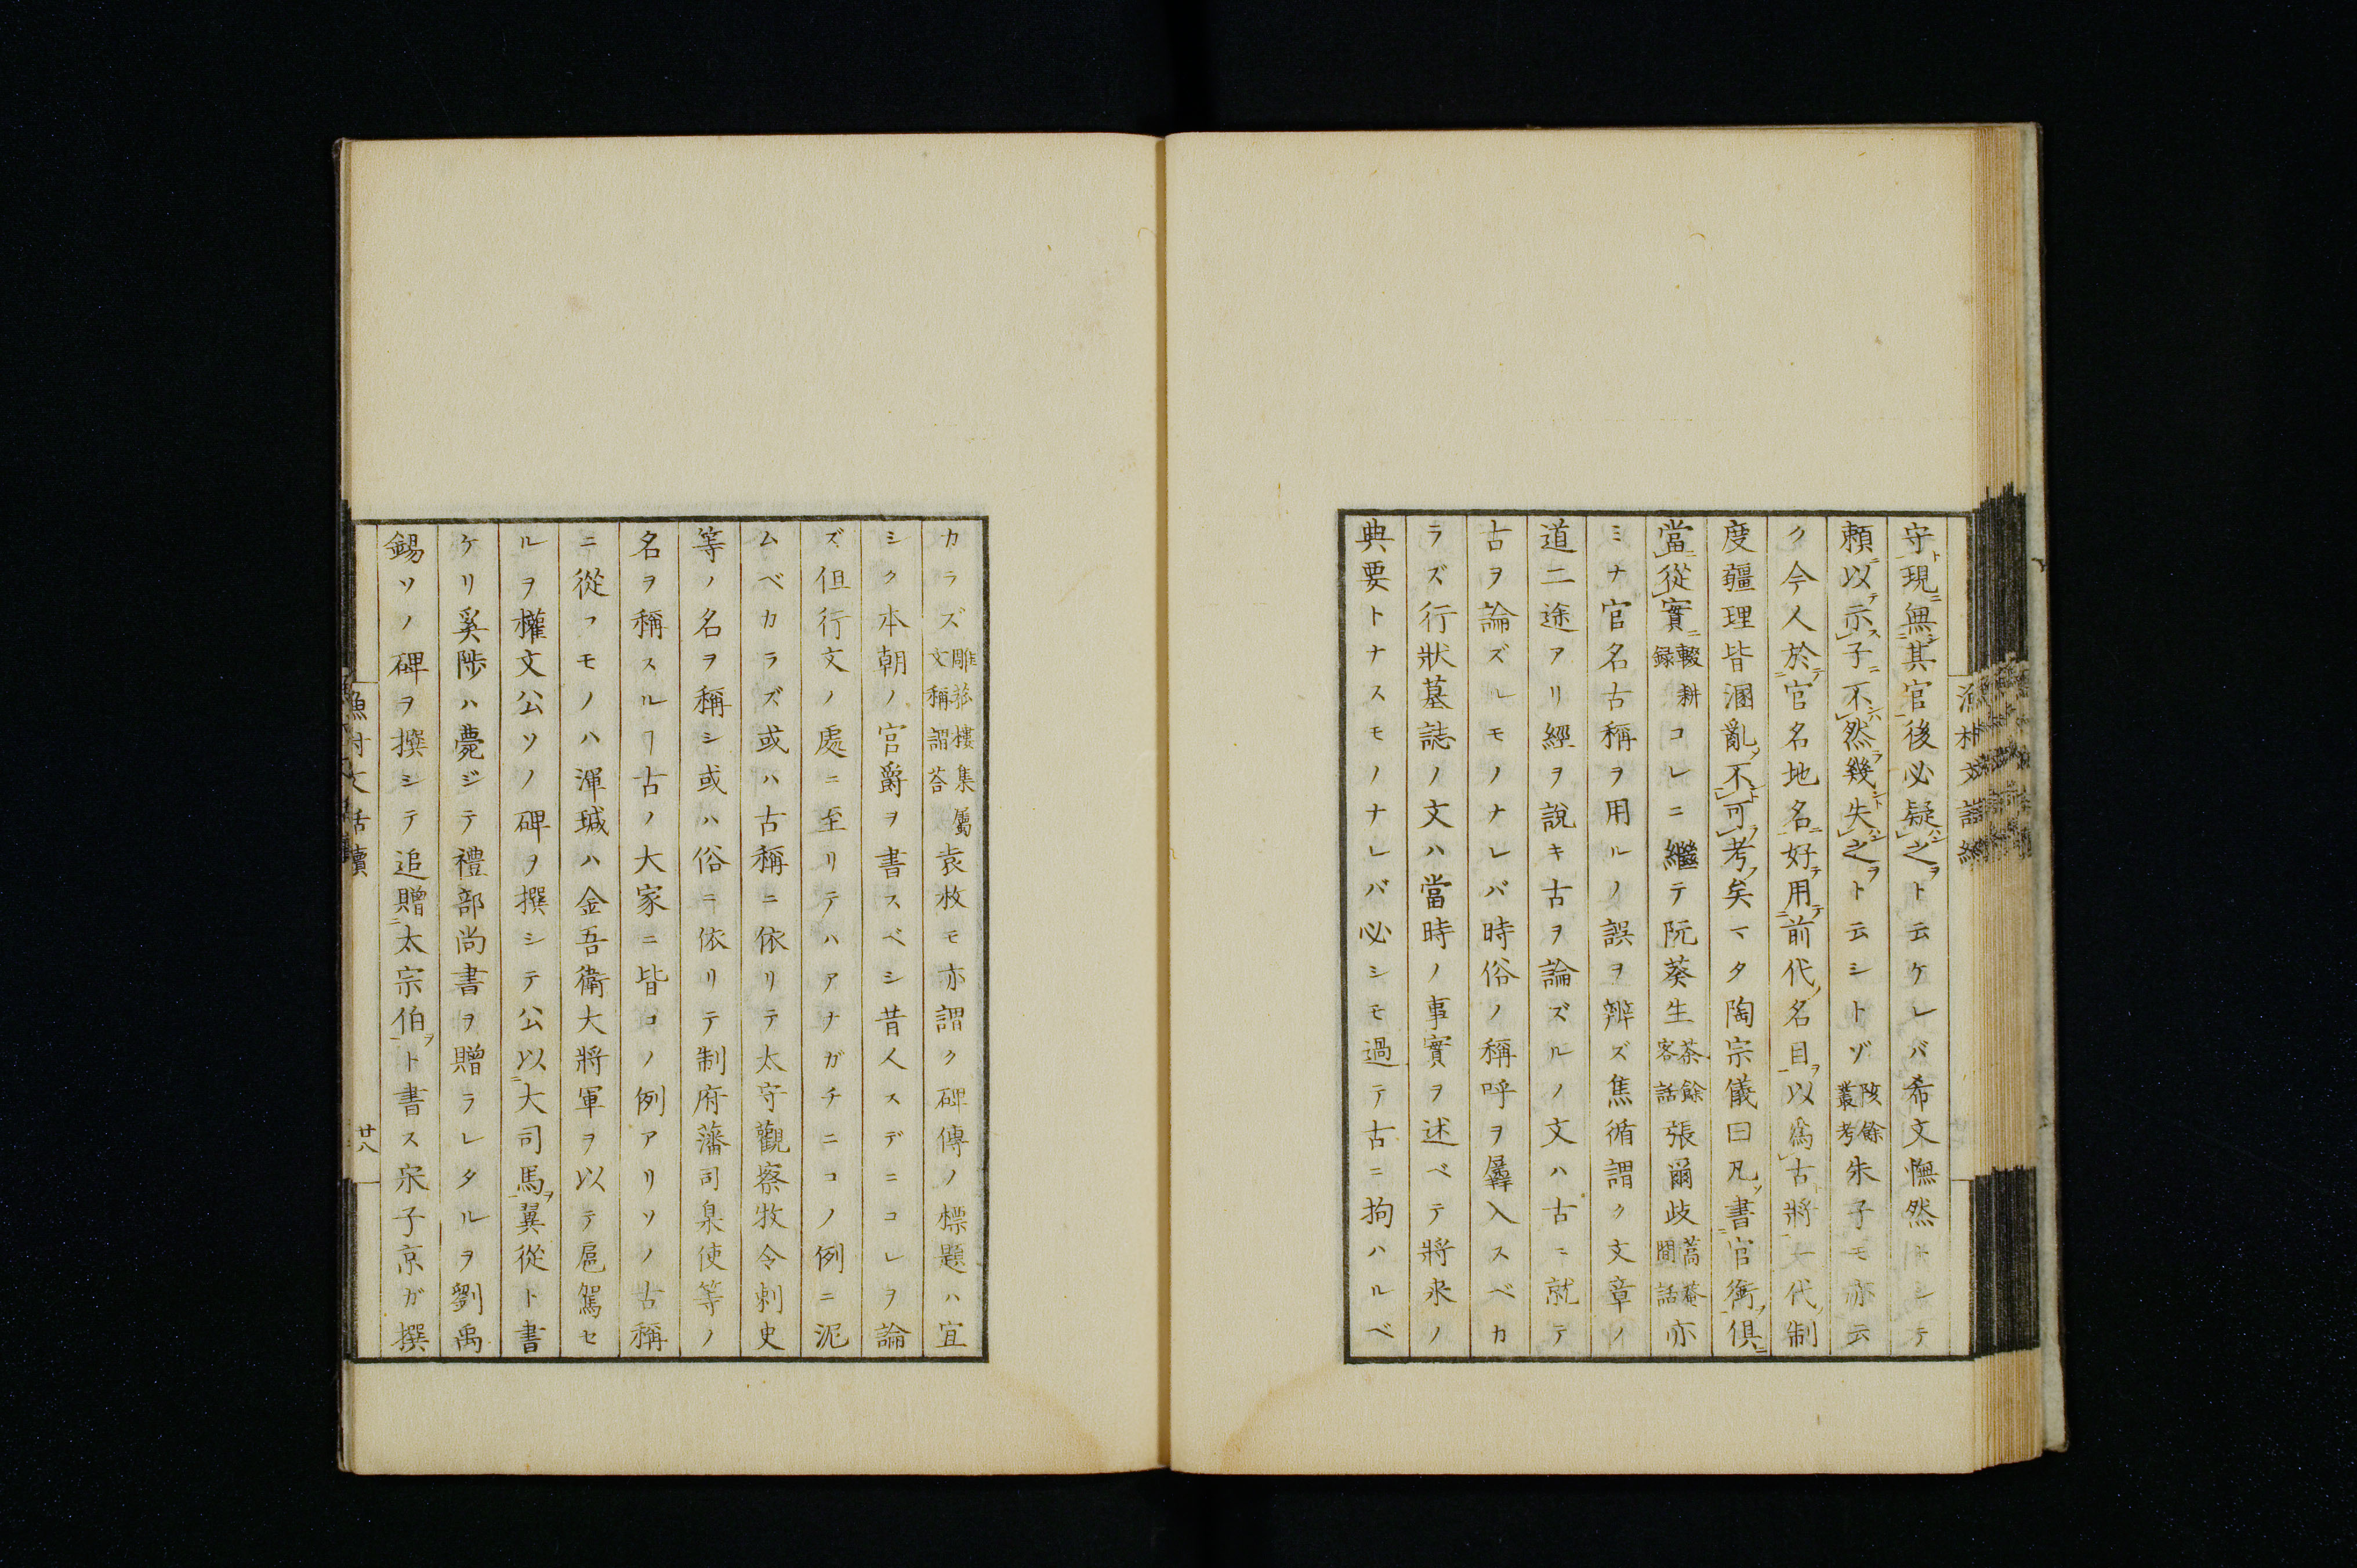 守現無其官後必疑之ト云ケレバ希文憮然トシテ
頼以示子不然幾失之ト云シトゾ陔餘叢考朱子モ亦云
ク今人於官名地名好用前代名目以爲古將一代制
度疆理皆溷亂不可考矣マタ陶宗儀曰凡書官銜俱
當從實輟耕録コレニ繼テ阮葵生茶餘客話張爾歧蒿菴間話亦
ミナ官名古稱ヲ用ルノ誤ヲ辨ズ焦循謂ク文章ノ
道二途アリ經ヲ說キ古ヲ論ズルノ文ハ古ニ就テ
古ヲ論ズレモノナレバ時俗ノ稱呼ヲ羼入スベカ
ラズ行狀墓誌ノ文ハ當時ノ事實ヲ述ベテ將來ノ
典要トナスモノナレバ必シモ過テ古ニ拘ハルベ
カラズ雕菰樓集屬文稱謂答袁枚モ亦謂ク碑傳ノ標題ハ宜
シク本朝ノ宮爵ヲ書スベシ昔人スデニコレヲ論
ズ但行文ノ處ニ至リテハアナガチニコノ例ニ泥
ムベカラズ或ハ古稱ニ依リテ太守觀察牧令刺史
等ノ名ヲ稱シ或ハ俗ニ依リテ制府藩司臬使等ノ
名ヲ稱スルヿ古ノ大家ニ皆コノ例アリソノ古稱
ニ從フモノハ渾瑊ハ金吾衛大將軍ヲ以テ扈駕セ
ルヲ權文公ソノ碑ヲ撰シテ公以大司馬翼從ト書
ケリ奚陟ハ薨ジテ禮部尚書ヲ贈ラレタルヲ劉禹
錫ソノ碑ヲ撰シテ追贈太宗伯ト書ス宋子京ガ撰
漁村文話續
廿八